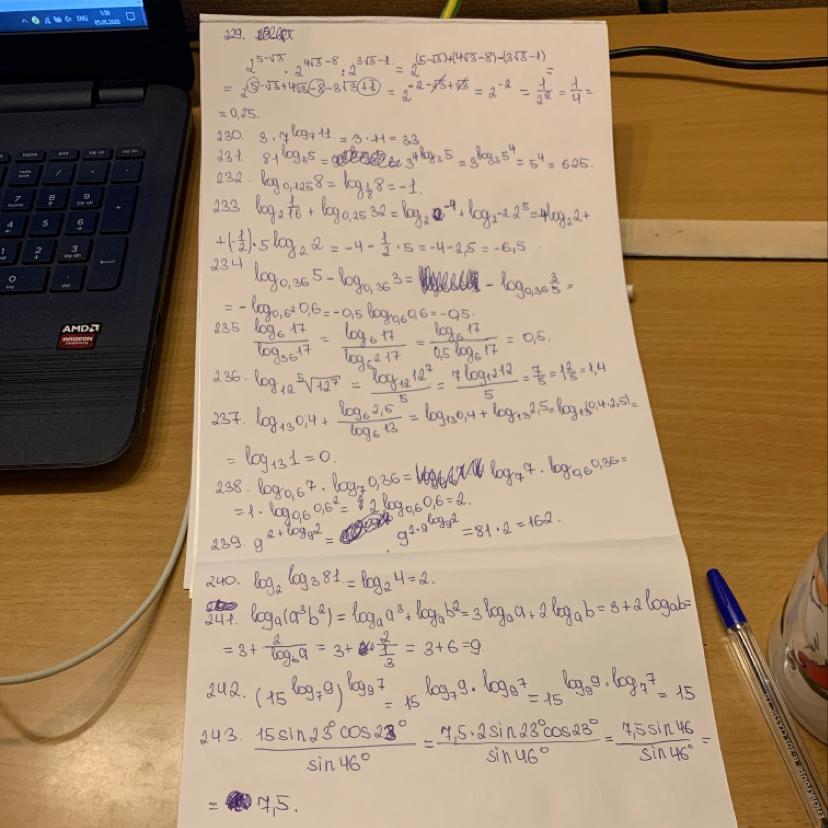 7:59
ENG
05.01.2020
AMD
RADEON
GRAPHICS
229.
2^(5-√3) · 2^(4√3-8) : 2^(3√3-1) = 2^((5-√3)+(4√3-8)-(3√3-1)) =
= 2^(5-√3+4√3-8-3√3+1) = 2^(-2-√3+√3) = 2^(-2) = 1/2² = 1/4 =
= 0,25.
230. 3·7^(log₇11) = 3·11 = 33
231. 81^(log₃5) = 3^(4log₃5) = 3^(log₃5⁴) = 5⁴ = 625.
232. log₀,₁₂₅8 = log_(1/8)8 = -1.
233. log₂ 1/16 + log₀,₂₅32 = log₂2⁻⁴ + log₂₋₂2⁵ = -4log₂2 +
+(-1/2)·5log₂2 = -4 - 1/2·5 = -4-2,5 = -6,5.
234 log₀,₃₆5 - log₀,₃₆3 = - log₀,₃₆ 3/5 =
= -log₀,₆²0,6 = -0,5log₀,₆0,6 = -0,5.
235 log₆17/log₃₆17 = log₆17/log₆²17 = log₆17/(0,5log₆17) = 0,5.
236. log₁₂ ⁵√12⁷ = log₁₂12⁷/5 = 7log₁₂12/5 = 7/5 = 1 2/5 = 1,4
237. log₁₃0,4 + log₆2,5/log₆13 = log₁₃0,4 + log₁₃2,5 = log₁₃(0,4·2,5) =
= log₁₃1 = 0.
238. log₀,₆7·log₇0,36 = log₇7·log₀,₆0,36 =
= 1·log₀,₆0,6² = 2log₀,₆0,6 = 2.
239. 9^(2+log₉2) = 9²·9^(log₉2) = 81·2 = 162.
240. log₂log₃81 = log₂4 = 2.
241. logₐ(a³b²) = logₐa³ + logₐb² = 3logₐa + 2logₐb = 3+2logₐb =
= 3 + 2/log_b a = 3 + 2/(1/3) = 3+6 = 9
242. (15^(log₇9))^(log₉7) = 15^(log₇9·log₉7) = 15^(log₉9·log₇7) = 15
243. 15sin23°cos23°/sin46° = 7,5·2sin23°cos23°/sin46° = 7,5sin46/sin46° =
= 7,5.